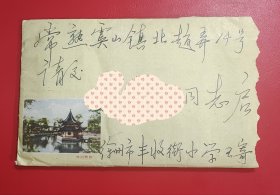 常熟虞山镇北赵弄14号
请交
同志启
徐州市丰收街小学王寄